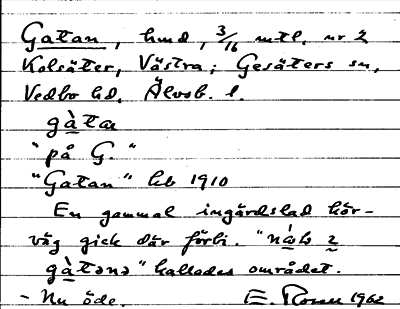 Gatan, hmd, 3/16 mtl. nr 2
Kolsäter, Västra; Gesäters sn,
Vedbo hd, Älvsb. l.
gàta
"på G."
"Gatan" kb 1910
En gammal ingärdslad kör-
väg gick där förbi.
gàtənə" kallades området.
- Nu öde. E. Rosen 1962